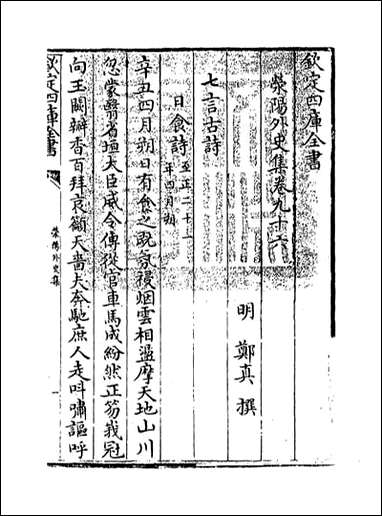 欽定四庫全書
滎陽外史集卷九十六
明 鄭真 撰
七言古詩
日食詩 至正二十一年四月朔
辛丑四月朔日有食之既氛祲烟雲相盪摩天地山川
忽蒙翳省垣大臣威令傳從官車馬成紛然正笏峩冠
向王闕瓣香百拜哀籲天嗇夫奔馳庶人走呌嘯謳呼
欽定四庫全書
滎陽外史集
一